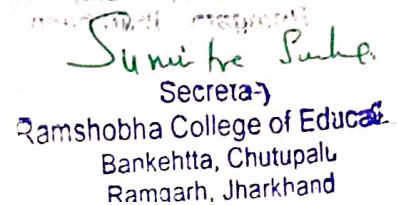 Secreta-)
Ramshobha College of Educa
Bankehtta, Chutupalu
Ramgarh, Jharkhand